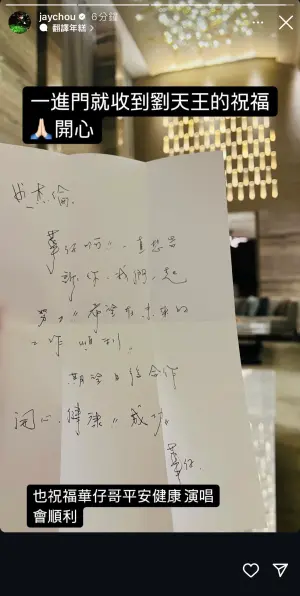 jaychou 6分鐘
翻譯年糕
一進門就收到劉天王的祝福
🙏🏻開心
杰倫
一直想告
訴你,我們一起
努力,希望在未來的
工作順利。
期望日後合作
開心、健康、成功。
華仔
也祝福華仔哥平安健康 演唱
會順利